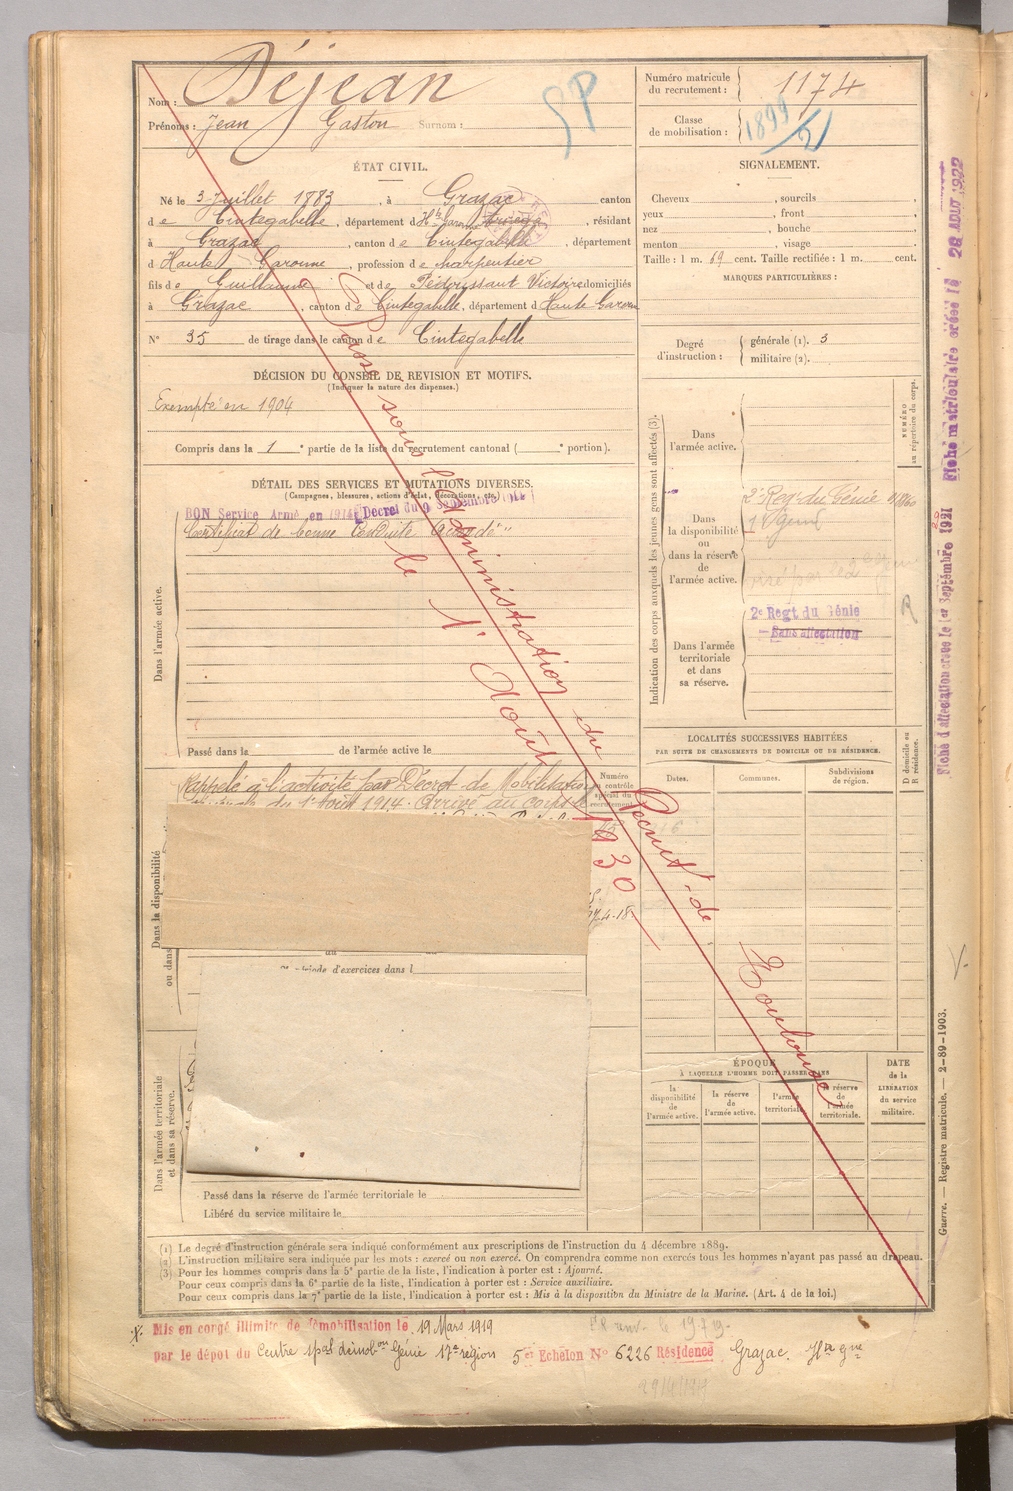 Nom : Déjean
Prénoms : Jean Gaston Surnom :
SP
Numéro matricule du recrutement : 1174
Classe de mobilisation : 1899/2
ÉTAT CIVIL.
Né le 3 Juillet 1883, à Grazac canton
de Cintegabelle, département d Hte Garonne, résidant
à Grazac, canton de Cintegabelle, département
d Haute Garonne, profession de charpentier
fils de Guillaume et de Pédoussaut Victoire domiciliés
à Grazac, canton de Cintegabelle, département d Haute Garonne
N° 35 de tirage dans le canton de Cintegabelle
SIGNALEMENT.
Cheveux , sourcils ,
yeux , front ,
nez , bouche ,
menton , visage .
Taille : 1 m. 69 cent. Taille rectifiée : 1 m. cent.
MARQUES PARTICULIÈRES :
Degré d'instruction : générale (1). 3
militaire (2).
DÉCISION DU CONSEIL DE REVISION ET MOTIFS.
(Indiquer la nature des dispenses.)
Exempté en 1904
Compris dans la 1e partie de la liste du recrutement cantonal ( e portion).
DÉTAIL DES SERVICES ET MUTATIONS DIVERSES.
(Campagnes, blessures, actions d'éclat, décorations, etc.)
BON Service Armé en 1914 Décret du 9 Septembre 1914
Certificat de bonne conduite
Dans l'armée active.
Passé dans la de l'armée active le
Rappelé à l'activité par Décret de Mobilisation
du 1er Août 1914. Arrivé au corps le
Passé sous l'administration du Recrut. de Toulouse
le 1er Août 1930
Indication des corps auxquels les jeunes gens sont affectés (3).
NUMÉRO au répertoire du corps.
Dans l'armée active.
Dans la disponibilité ou dans la réserve de l'armée active.
2e Régt du Génie
Dans l'armée territoriale et dans sa réserve.
2e Regt du Génie
Sans affectation
R
Numéro au contrôle spécial du recrutement
LOCALITÉS SUCCESSIVES HABITÉES
PAR SUITE DE CHANGEMENTS DE DOMICILE OU DE RÉSIDENCE.
D domicile ou R résidence.
Dates. Communes. Subdivisions de région.
Dans la disponibilité
ou dans
d'exercices dans l
Dans l'armée territoriale et dans sa réserve.
ÉPOQUE
À LAQUELLE L'HOMME DOIT PASSER DANS
la disponibilité de l'armée active.
la réserve de l'armée active.
l'armée territoriale.
la réserve de l'armée territoriale.
DATE de la LIBÉRATION du service militaire.
Passé dans la réserve de l'armée territoriale le
Libéré du service militaire le
(1) Le degré d'instruction générale sera indiqué conformément aux prescriptions de l'instruction du 4 décembre 1889.
(2) L'instruction militaire sera indiquée par les mots : exercé ou non exercé. On comprendra comme non exercés tous les hommes n'ayant pas passé au drapeau.
(3) Pour les hommes compris dans la 5e partie de la liste, l'indication à porter est : Ajourné.
Pour ceux compris dans la 6e partie de la liste, l'indication à porter est : Service auxiliaire.
Pour ceux compris dans la 7e partie de la liste, l'indication à porter est : Mis à la disposition du Ministre de la Marine. (Art. 4 de la loi.)
Mis en congé illimité de démobilisation le 19 Mars 1919
par le dépôt du Centre 1pal démobon Génie 17e région 5e Echelon N° 6226 Résidence Grazac. Hte Gne
Fiche matriculaire créée le 28 AOUT 1922
Guerre. — Registre matricule. — 2-89-1903.